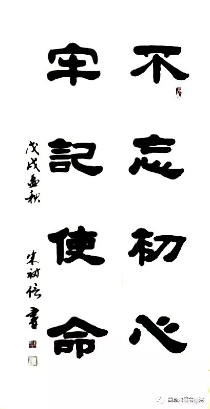 不忘初心
牢記使命
戊戌孟秋
書